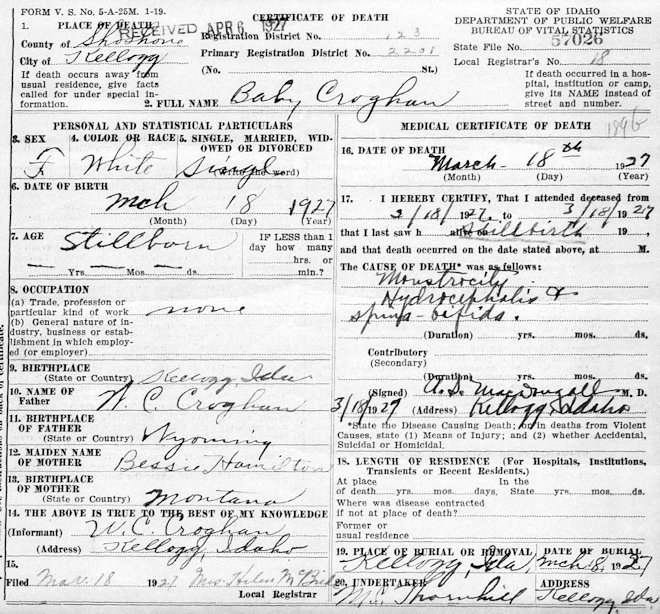 FORM V. S. No. 5-A-25M. 1-19.
RECEIVED APR 6 1927
CERTIFICATE OF DEATH
STATE OF IDAHO
DEPARTMENT OF PUBLIC WELFARE
BUREAU OF VITAL STATISTICS
1. PLACE OF DEATH
County of Shoshone
City of Kellogg
Registration District No. 123
Primary Registration District No. 2201
(No. St.)
State File No. 57026
Local Registrar's No. 18
If death occurs away from usual residence, give facts called for under special information.
If death occurred in a hospital, institution or camp, give its NAME instead of street and number.
2. FULL NAME Baby Croghan
PERSONAL AND STATISTICAL PARTICULARS
3. SEX F
4. COLOR OR RACE White
5. SINGLE, MARRIED, WIDOWED OR DIVORCED
the word) Singl
6. DATE OF BIRTH
Mch 18 1927
(Month) (Day) (Year)
7. AGE Stillborn
Yrs. Mos. ds.
IF LESS than 1 day how many hrs. or min.?
8. OCCUPATION
(a) Trade, profession or particular kind of work none
(b) General nature of industry, business or establishment in which employed (or employer)
9. BIRTHPLACE
(State or Country) Kellogg Ida
10. NAME OF Father W. C. Croghan
11. BIRTHPLACE OF FATHER
(State or Country) Wyoming
12. MAIDEN NAME OF MOTHER Bessie Hamilton
13. BIRTHPLACE OF MOTHER
(State or Country) Montana
14. THE ABOVE IS TRUE TO THE BEST OF MY KNOWLEDGE
(Informant) W. C. Croghan
(Address) Kellogg, Idaho
15.
Filed Mar. 18 1927 Mrs. Helen McBride
Local Registrar
MEDICAL CERTIFICATE OF DEATH
189b
16. DATE OF DEATH
March 18th 1927
(Month) (Day) (Year)
17. I HEREBY CERTIFY, That I attended deceased from
3/18/1927, to 3/18/1927
that I last saw h alive on Stillbirth 19
and that death occurred on the date stated above, at M.
The CAUSE OF DEATH* was as follows:
Monstrocity
Hydrocephalis &
spina-bifida.
(Duration) yrs. mos. ds.
Contributory
(Secondary)
(Duration) yrs. mos. ds.
(Signed) A. S. MacDougall M. D.
3/18/1927 (Address) Kellogg, Idaho
*State the Disease Causing Death; or, in deaths from Violent Causes, state (1) Means of Injury; and (2) whether Accidental, Suicidal or Homicidal.
18. LENGTH OF RESIDENCE (For Hospitals, Institutions, Transients or Recent Residents.)
At place of death yrs. mos. days. In the State yrs. mos. ds.
Where was disease contracted if not at place of death?
Former or usual residence
19. PLACE OF BURIAL OR REMOVAL Kellogg, Ida.
DATE OF BURIAL Mch 18, 1927
20. UNDERTAKER M. C. Thornhill
ADDRESS Kellogg Ida